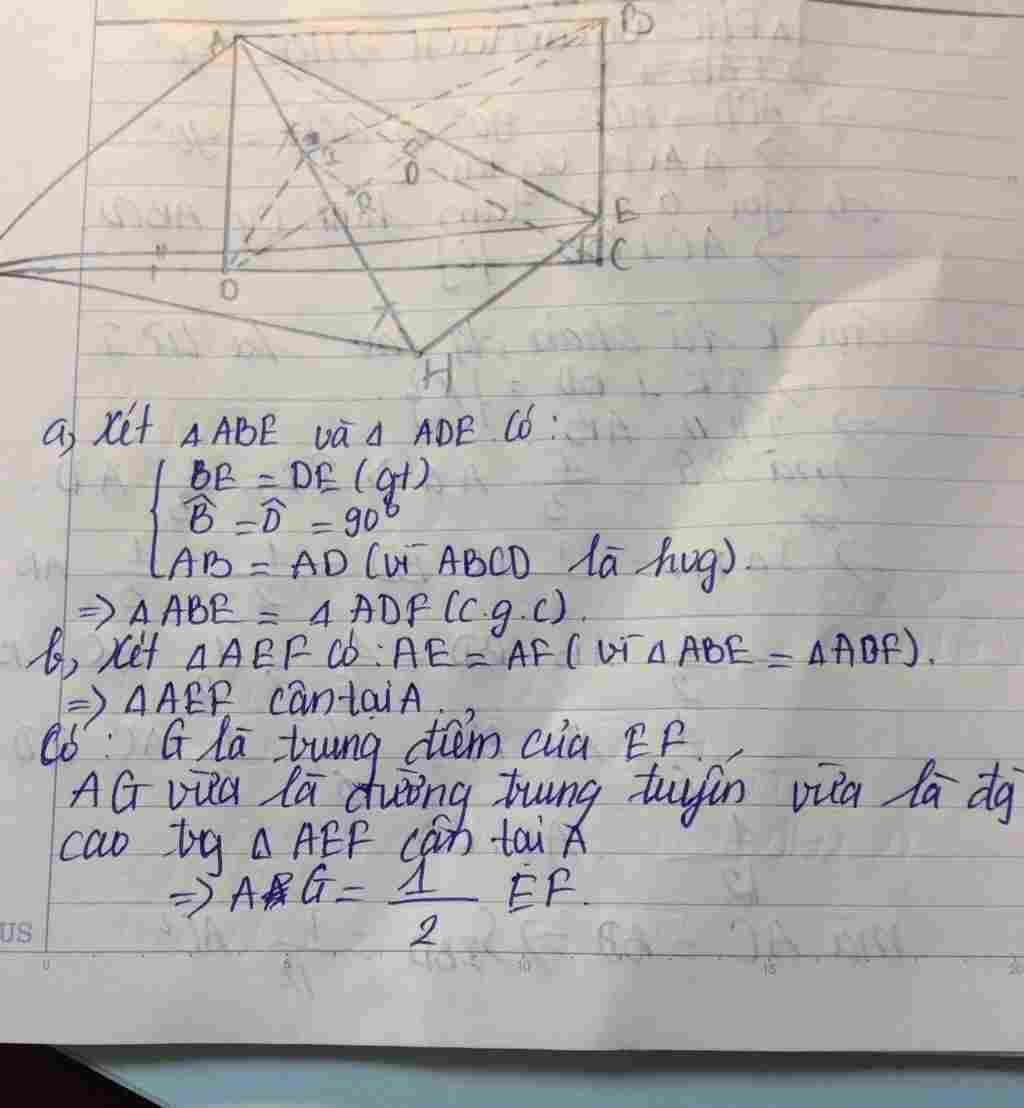 A
B
I
O
E
C
D
H
a, Xét Δ ABE và Δ ADE có:
BE = DE (gt)
B̂ = D̂ = 90°
AB = AD (vì ABCD là hvg).
=> Δ ABE = Δ ADF (c.g.c).
b, Xét Δ AEF có: AE = AF (vì Δ ABE = Δ ADF).
=> Δ AEF cân tại A.
Có: G là trung điểm của EF.
AG vừa là đường trung tuyến vừa là đg
cao tg Δ AEF cân tại A
=> AG = 1/2 EF.
US
0 5 10 15 20